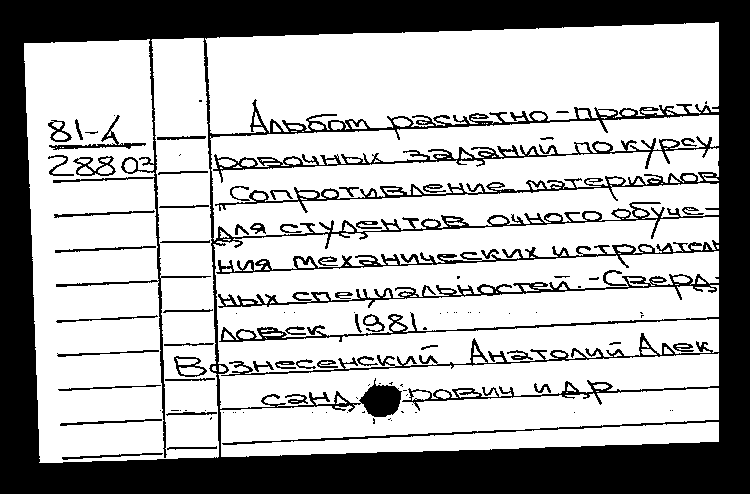 Альбом расчетно-проекти-
81-4
28803
ровочных заданий по курсу
„Сопротивление материалов
для студентов очного обуче-
ния механических и строитель
ных специальностей. - Сверд-
ловск, 1981.
Вознесенский, Анатолий Алек
сандрович и др